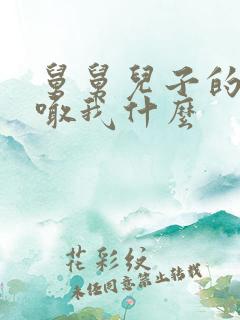 舅舅兒子的
噉我什麼
花彩紋
未经同意禁止转载